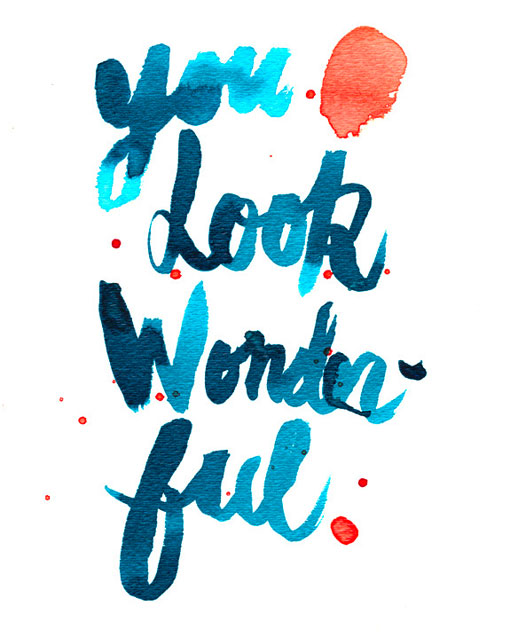 you
Look
Wonder-
ful